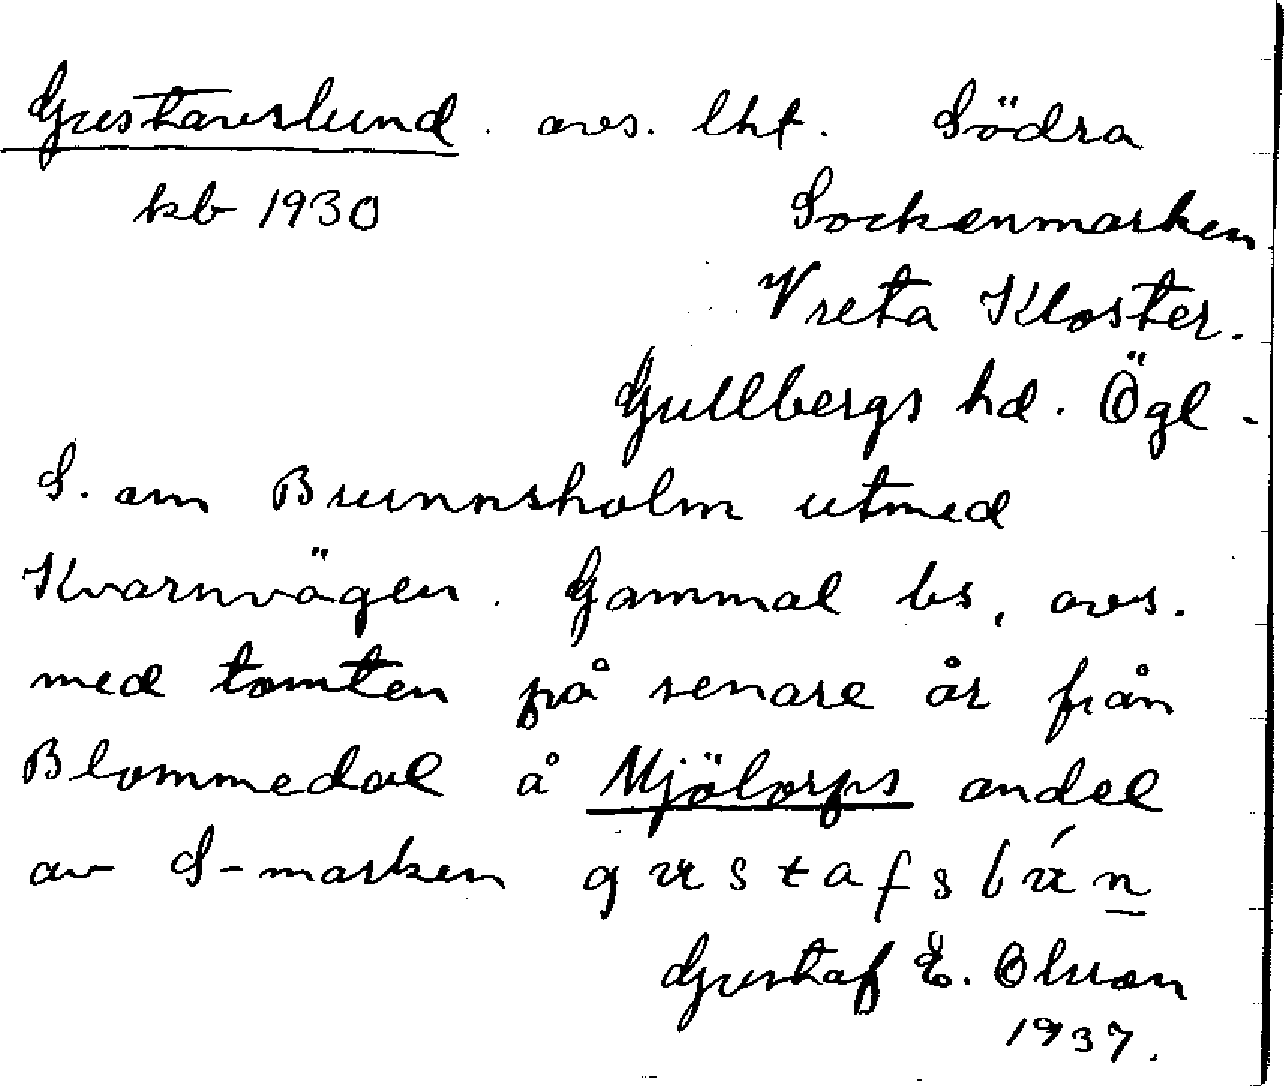 Gustavslund. avs. lht. Södra
kb 1930 Sockenmarken
Vreta Kloster.
Gullbergs hd. Ögl.
S. om Brunnsholm utmed
Kvarnvägen. Gammal bs, avs.
med tomten på senare år från
Blommedal å Mjölorps andel
av S-marken gustafslún
Gustaf E. Olsson
1937.